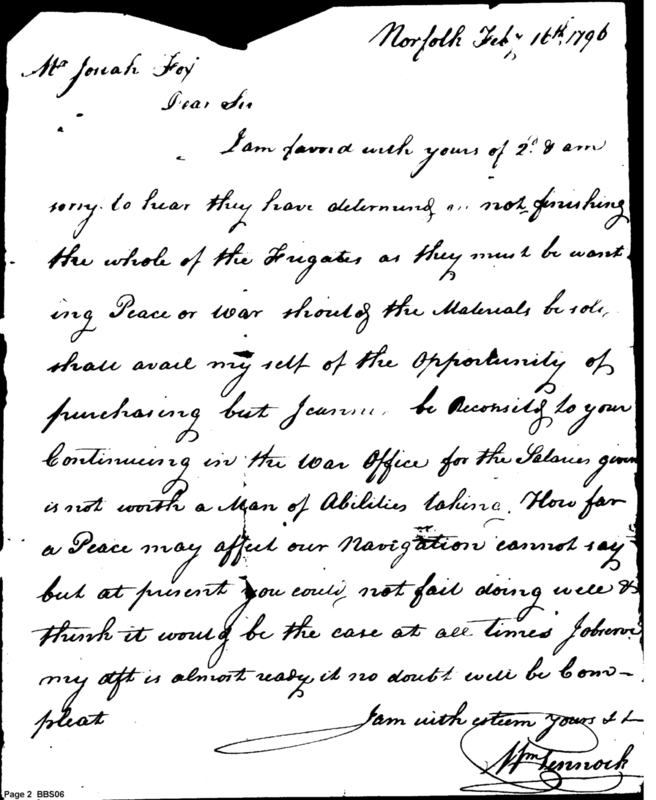 Norfolk Feby 16th. 1796
Mr Josiah Fox
Dear Sir
I am favord with yours of 2d. & am
sorry to hear they have determind on not finishing
the whole of the Frigates as they must be want
ing Peace or War should the Materials be sold,
shall avail my self of the Opportunity of
purchasing but I cannot be Reconsild to your
Continueing in the War Office for the Salaries given
is not worth a Man of Abilities taking. How far
a Peace may affect our Navigation cannot say
but at present you could not fail doing well &
think it would be the case at all times I observe
my dft is almost ready it no doubt will be Com-
pleat
I am with esteem yours &c
Wm Pennock
Page 2 BBS06